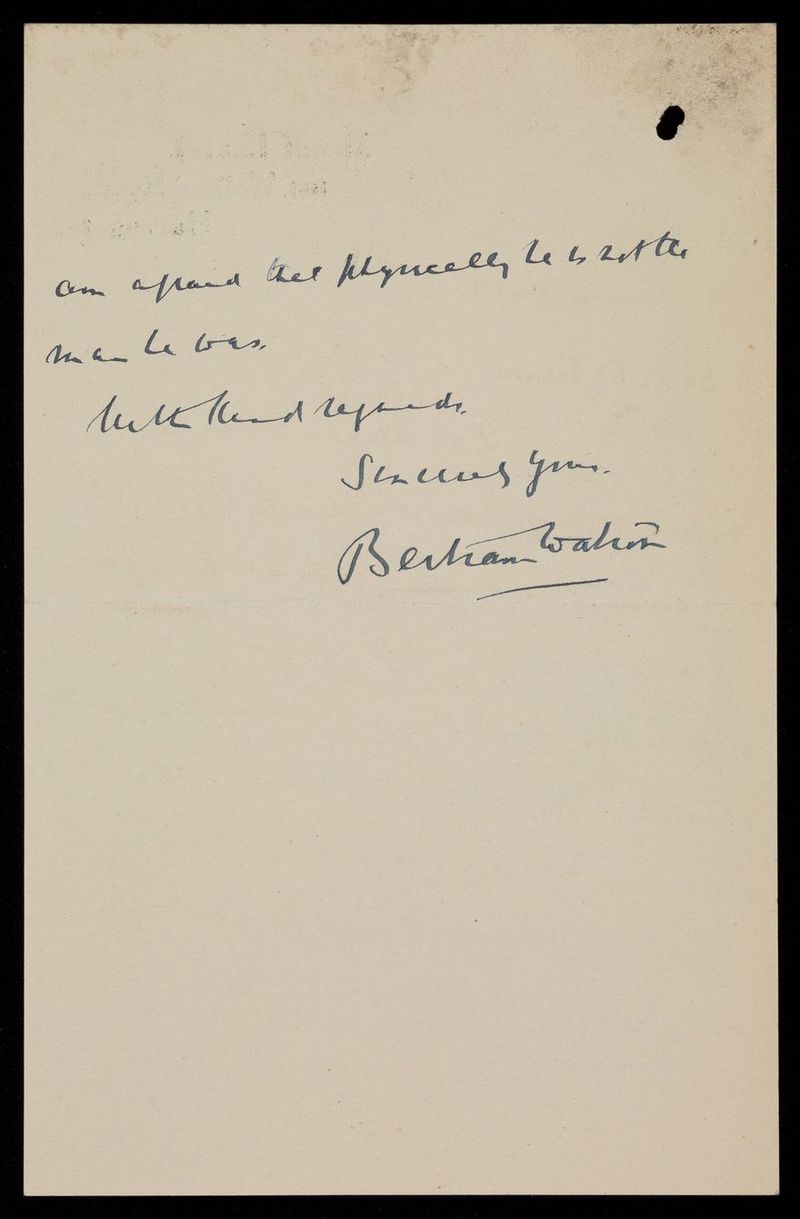 am afraid that physically he is not the
man he was.
With kind regards.
Sincerely yours.
Bertram Watson